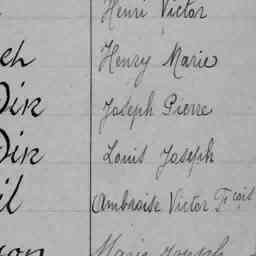 Henri Victor
ch Henry Marie
Din Joseph Pierre
Din Louis Joseph
il Ambroise Victor Fçois
son Marie Joseph